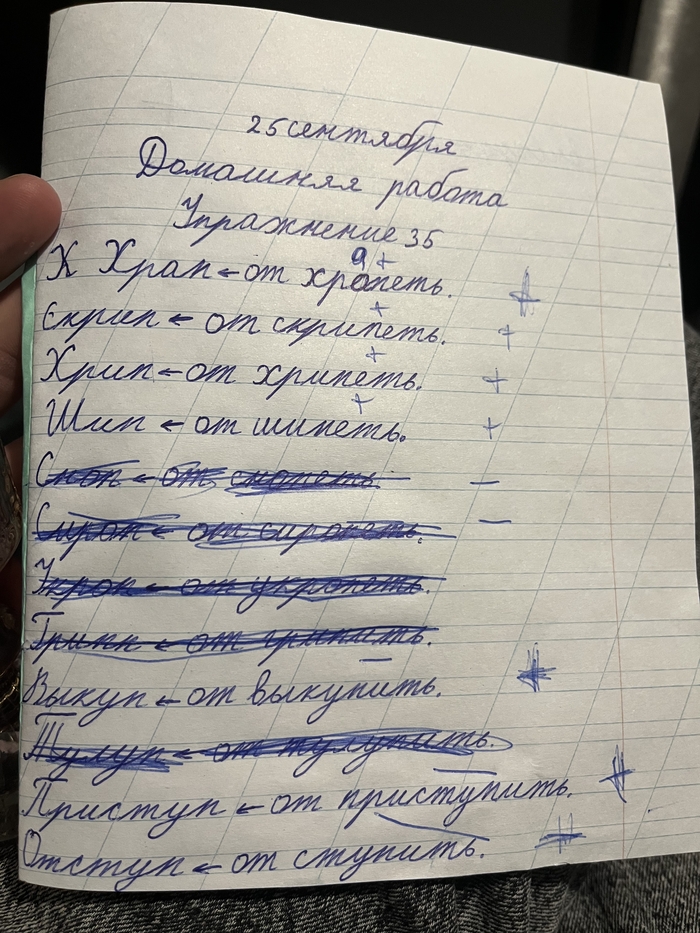 25 сентября
Домашняя работа
Упражнение 35
а +
К Храп ← от хропеть. +
+
Скрип ← от скрипеть. +
+
Хрип ← от хрипеть. +
+
Шип ← от шипеть. +
Сноп ← от снопеть. -
Сироп ← от сиропеть. -
Укроп ← от укропеть.
Грипп ← от грипить.
Выкуп ← от выкупить. +
Тулуп ← от тулупить.
Приступ ← от приступить. +
Отступ ← от ступить. +